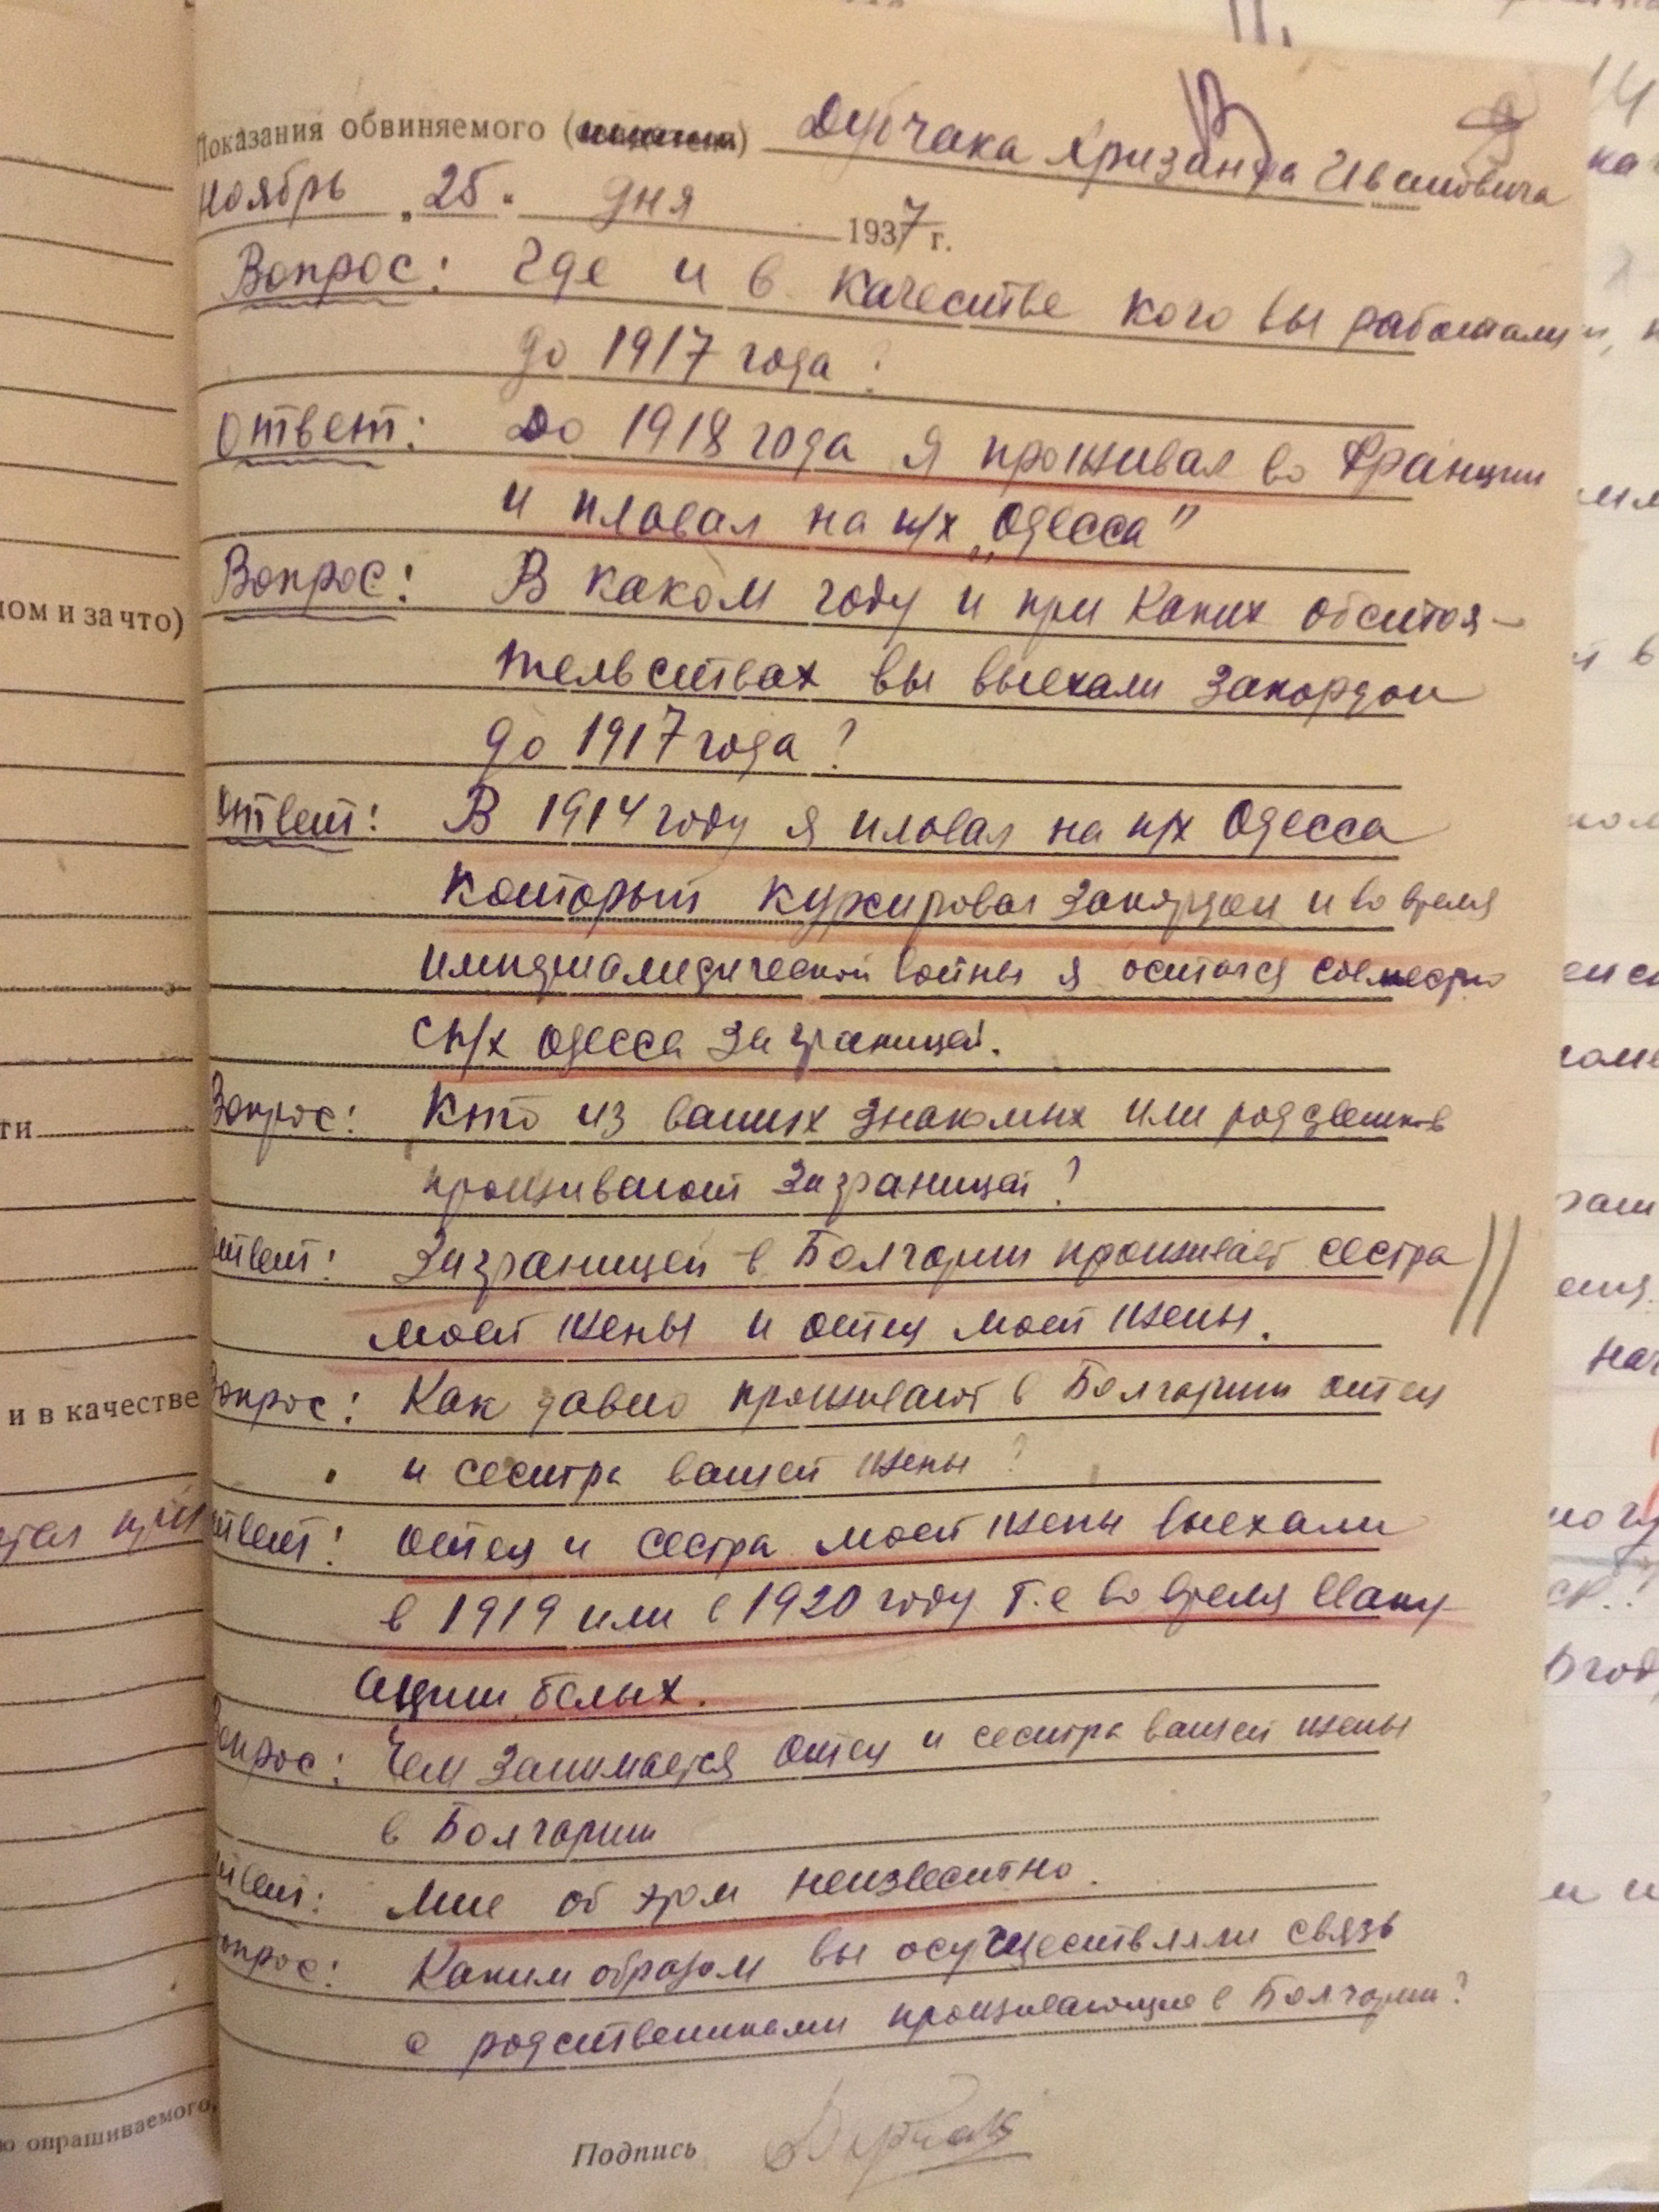 Показания обвиняемого () Дубчака Хризанфа Ивановича
ноябрь "25" дня 1937 г.
Вопрос: Где и в качестве кого вы работали
до 1917 года?
Ответ: До 1918 года я проживал во Франции
и плавал на п/х „Одесса"
Вопрос: В каком году и при каких обстоя-
тельствах вы выехали закордон
до 1917 года?
Ответ: В 1914 году я плавал на п/х Одесса
который курсировал закордон и во время
войны я остался совместно
с п/х Одесса за границей.
Вопрос: Кто из ваших знакомых или
проживают заграницей?
Ответ: Заграницей в Болгарии проживает сестра
моей жены и отец моей жены.
Вопрос: Как давно проживают в Болгарии отец
и сестра вашей жены?
Ответ: отец и сестра моей жены выехали
в 1919 или в 1920 году т.е во время Эваку-
ации белых.
Вопрос: Чем занимается отец и сестра вашей жены
в Болгарии
Ответ: Мне об этом неизвестно.
Вопрос: Каким образом вы осуществляли связь
с родственниками в Болгарии?
Подпись
ном и за что)
ти
и в качестве
опрашиваемого,